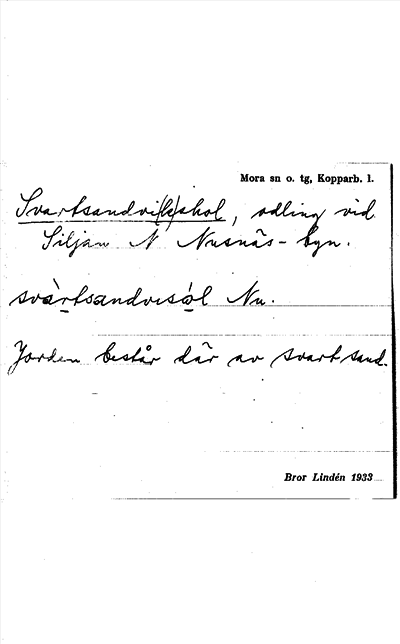 Mora sn o. tg, Kopparb. l.
Svartsandvi(k)shol, odling vid
Siljan N Nusnäs-byn.
svàrtsandvıso̠l Nu.
Jorden består där av svart sand.
Bror Lindén 1933